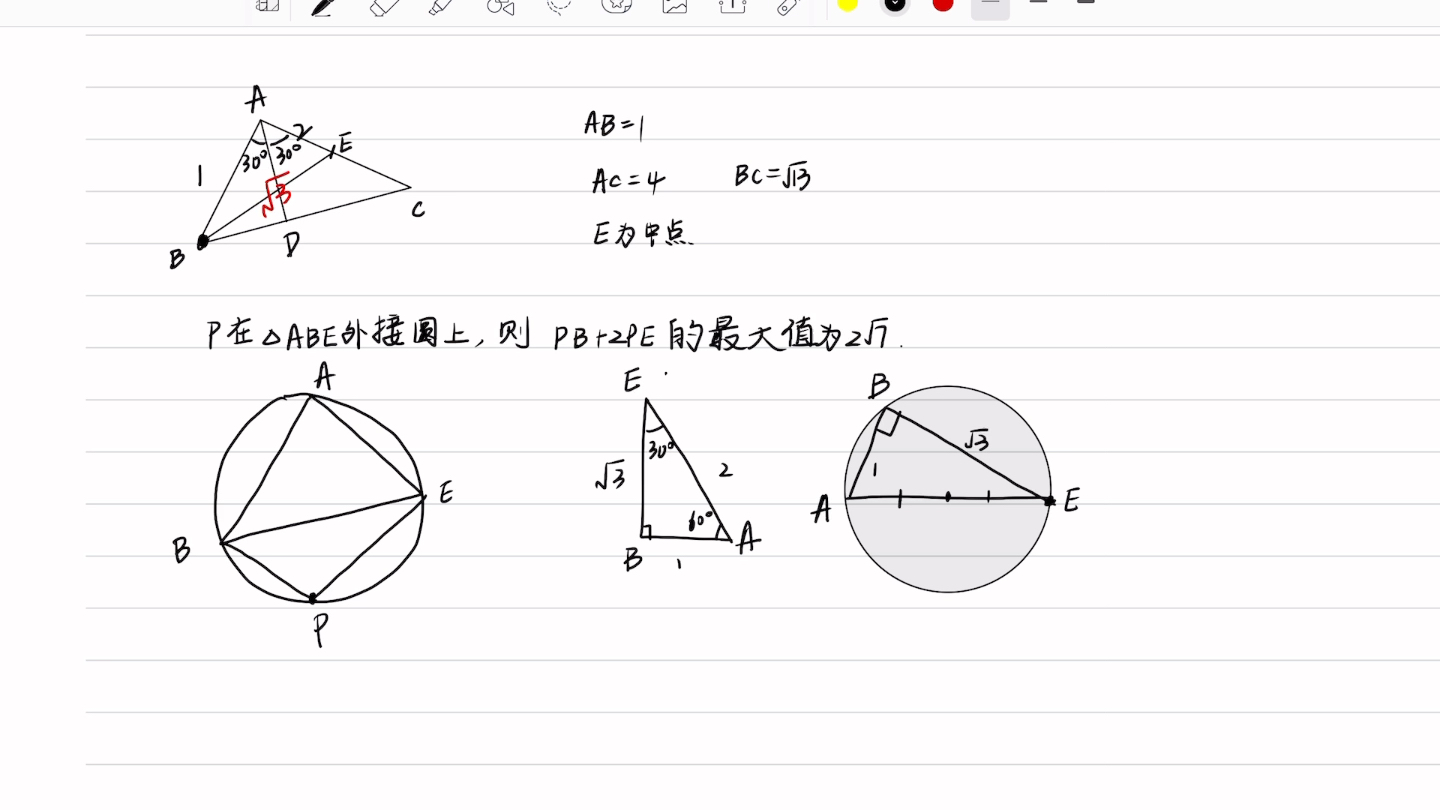 A
2
E
30° 30°
1
√3
C
B
D
AB=1
AC=4 BC=√13
E为中点
P在△ABE外接圆上,则 PB+2PE 的最大值为2√7.
A
E
B
P
E
30°
√3
2
60°
A
B
1
B
√3
1
A
E